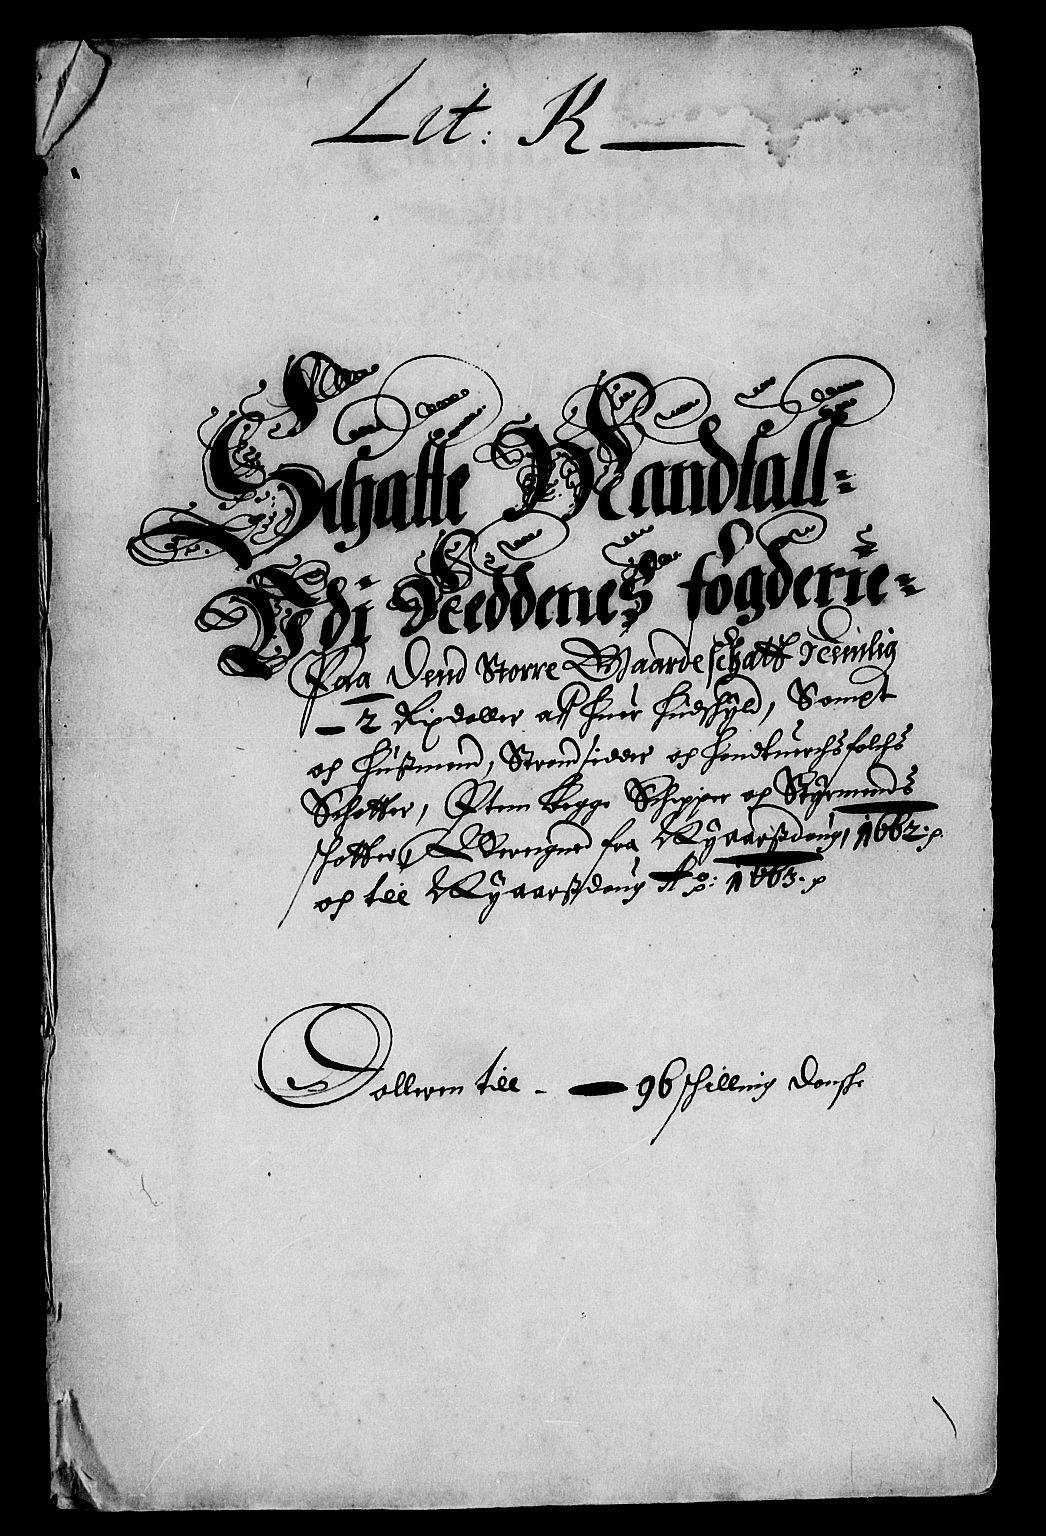 Lit: K
Schatte Mandtall
Udi Neddenes fögderie
Paa dend Storre Gaardeschatt nemlig
2 Rixdaller aff huer hudschÿld, Sampt
och Hußmend, Strandsidder och Handtuerchsfolchs
Schatter, Item begge Schipper och Stÿrmends
schatter, Beregnet fra Nÿaarßdaug, 1662.
och till Nÿaarßdaug Ao: 1663.
Dalleren till 96 schilling Danske